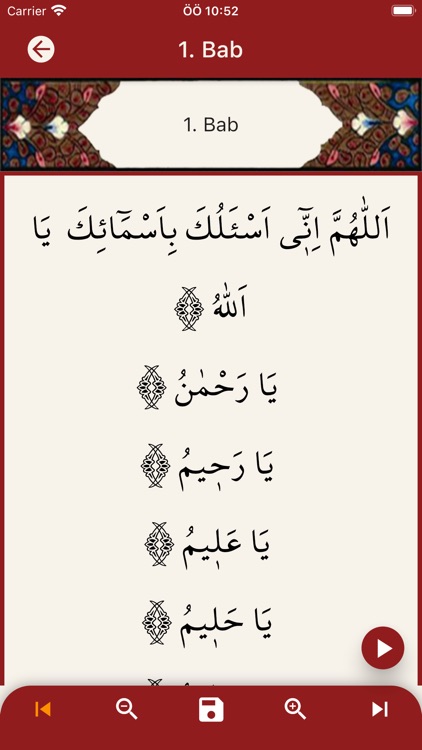 Carrier ÖÖ 10:52
1. Bab
1. Bab
اَللّٰهُمَّ اِنّ۪ٓي اَسْئَلُكَ بِاَسْمَٓائِكَ يَا
اَللّٰهُ
يَا رَحْمٰنُ
يَا رَح۪يمُ
يَا عَل۪يمُ
يَا حَل۪يمُ